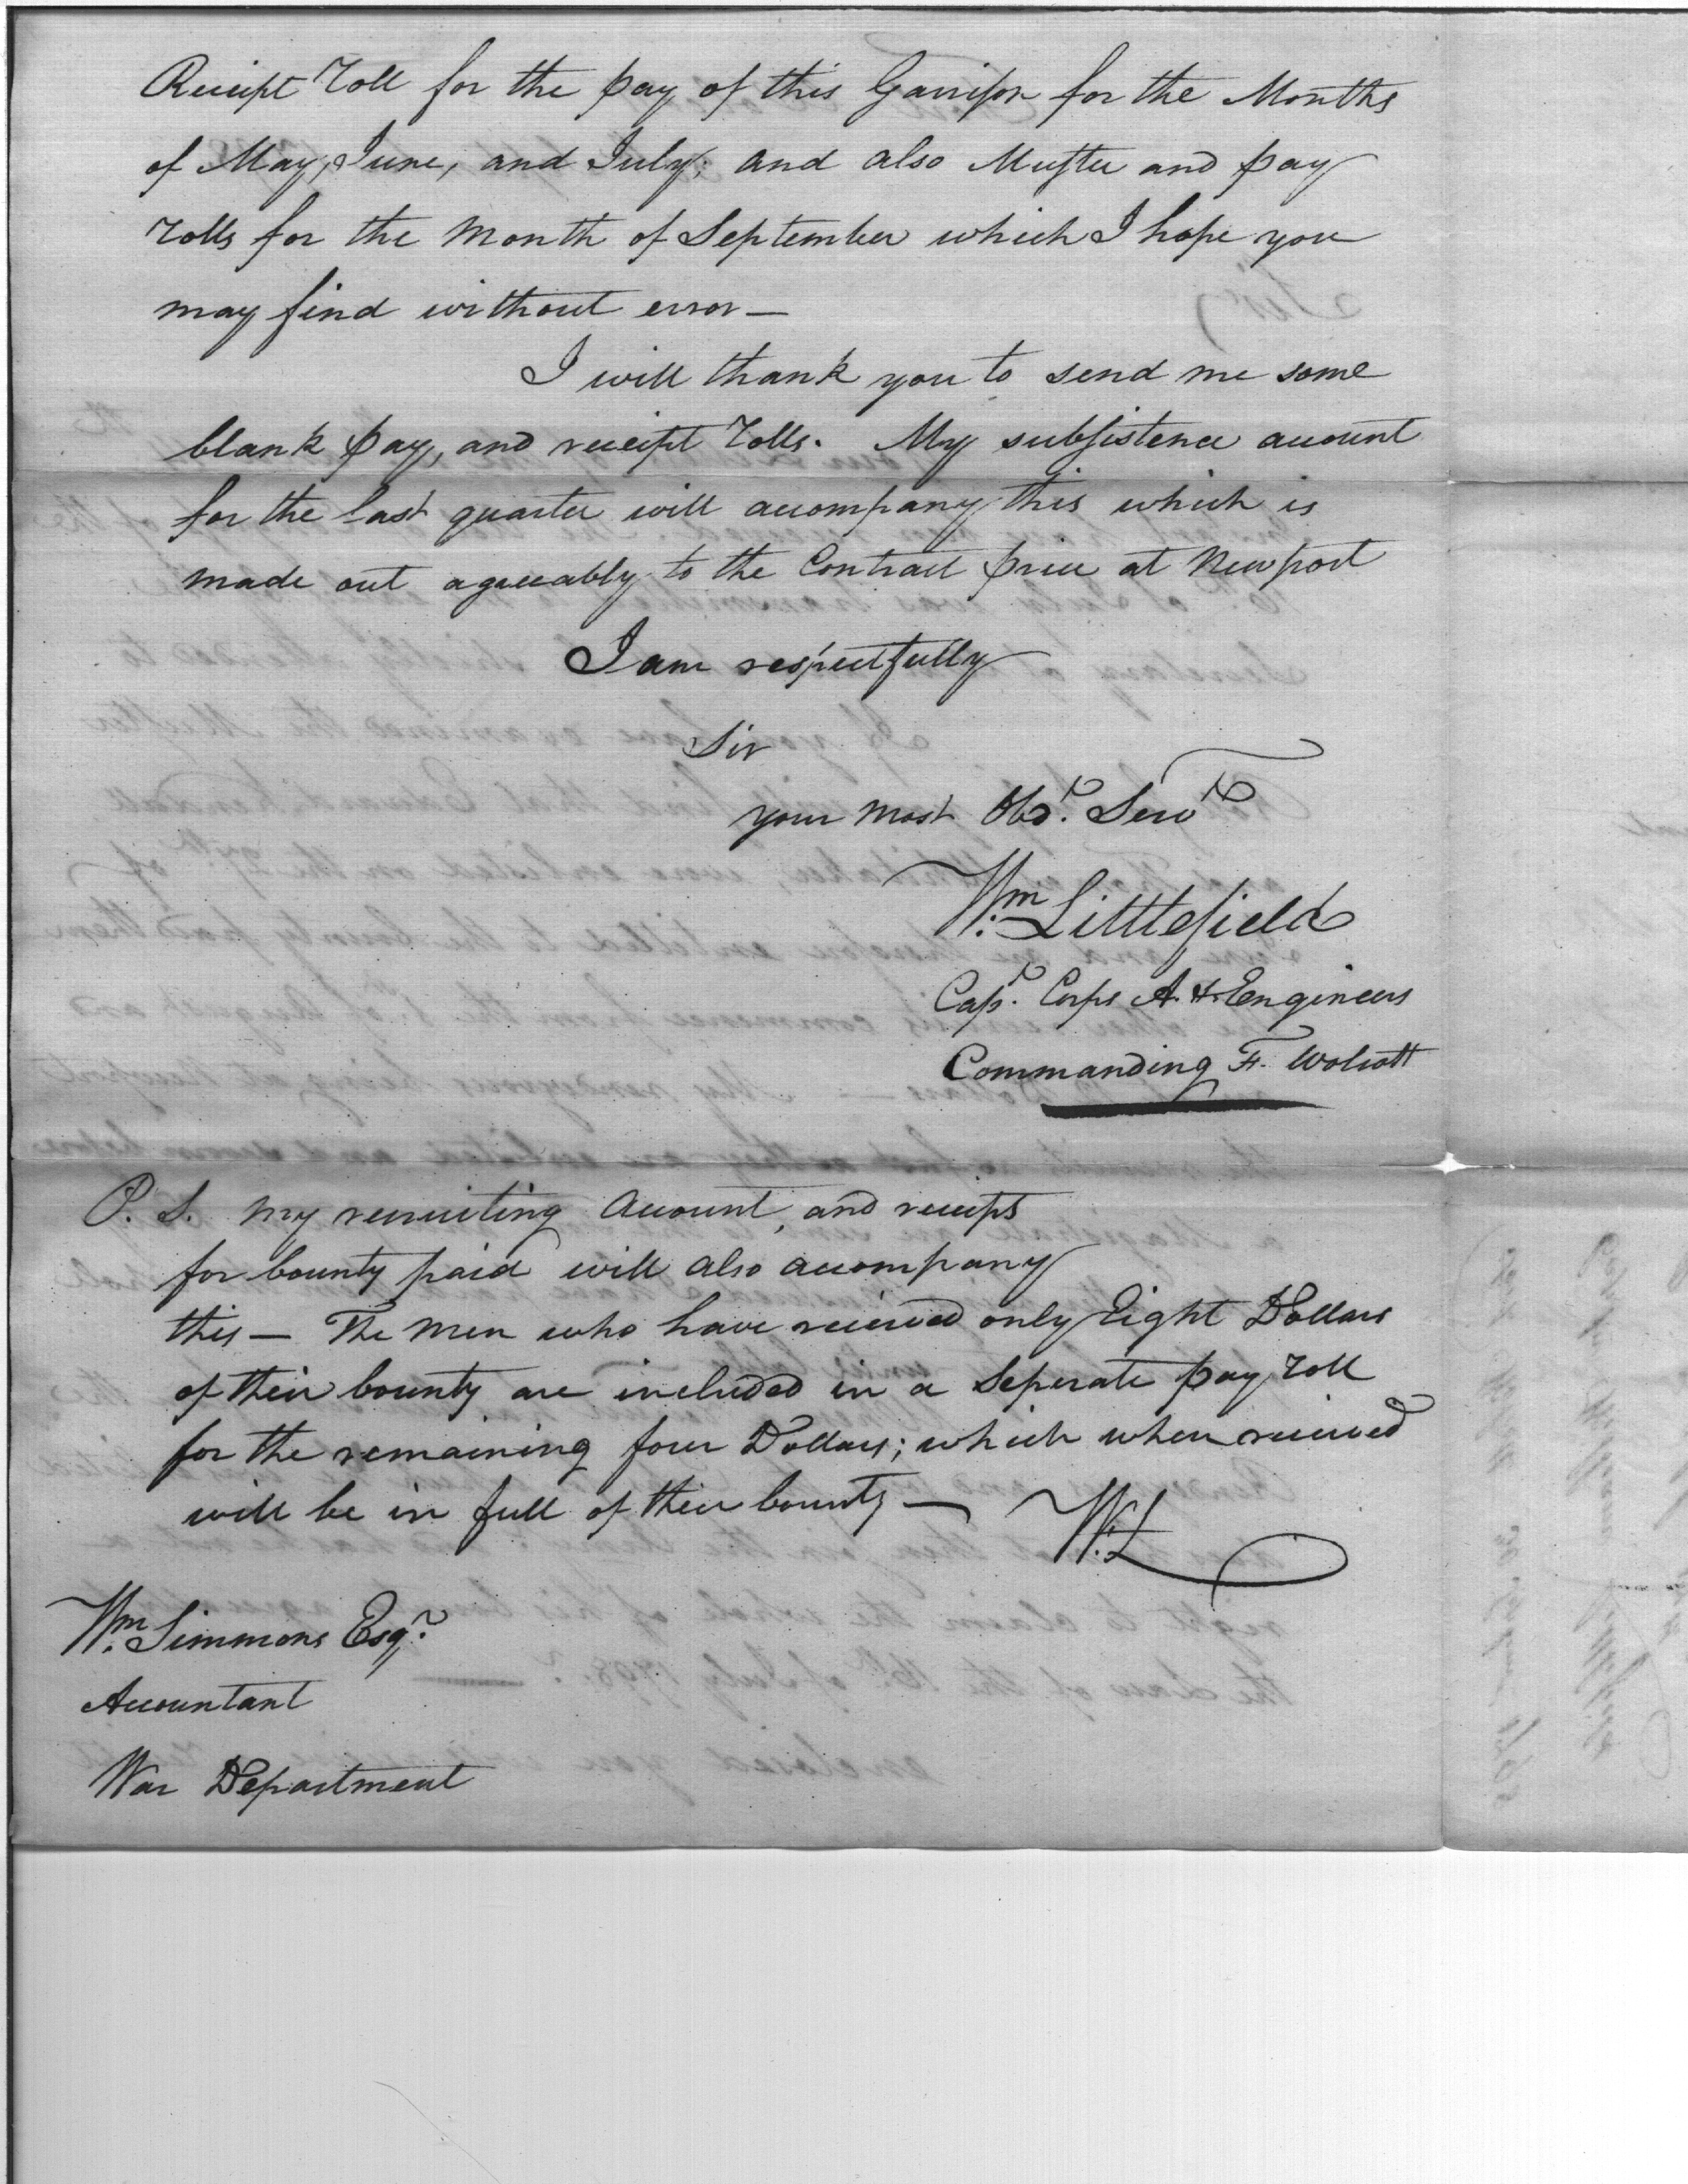 Receipt roll for the pay of this Garrison for the Months
of May, June, and July; and also Muster and pay
rolls for the Month of September which I hope you
may find without error—
I will thank you to send me some
blank pay, and receipt rolls. My subsistence account
for the last quarter will accompany this which is
made out agreeably to the Contract price at Newport
I am respectfully
Sir
your most Obd.t Serv.t
W.m Littlefield
Cap.t Corps A. & Engineers
Commanding F. Wolcott
P. S. my recruiting account, and receipts
for bounty paid will also accompany
this— The Men who have received only Eight Dollars
of their bounty are included in a seperate pay roll
for the remaining four Dollars; which when received
will be in full of their bounty— W.L
W.m Simmons Esq.r
Accountant
War Department